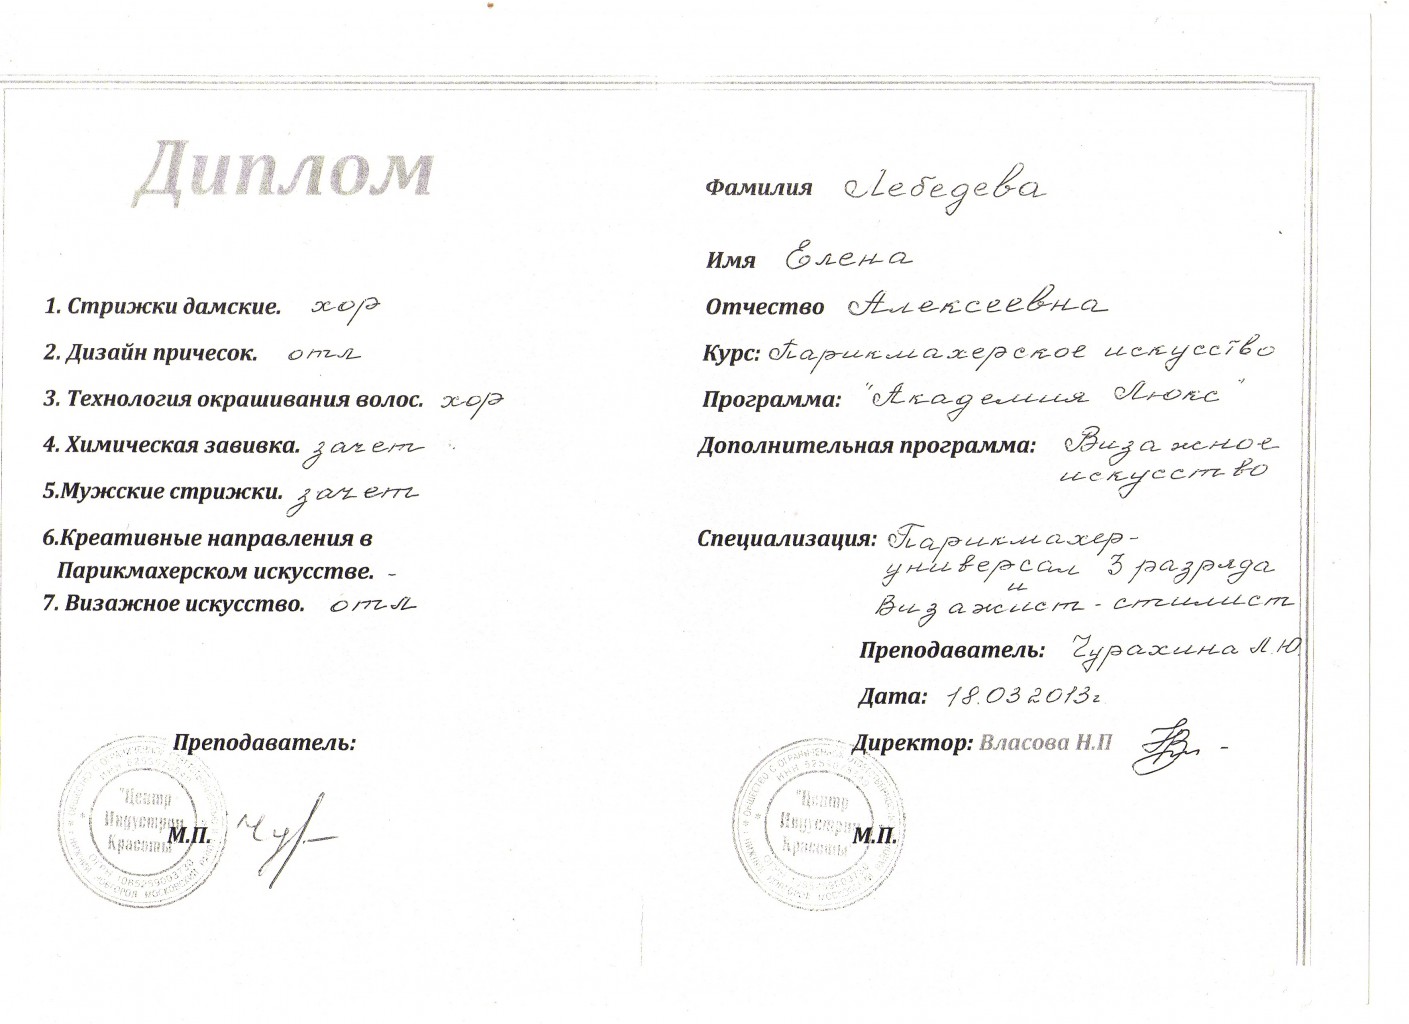 Диплом
1. Стрижки дамские. хор
2. Дизайн причесок. отл
3. Технология окрашивания волос. хор
4. Химическая завивка. зачет
5.Мужские стрижки. зачет
6.Креативные направления в
Парикмахерском искусстве. -
7. Визажное искусство. отл
Преподаватель:
"Центр
Индустрии
Красоты
М.П.
Фамилия Лебедева
Имя Елена
Отчество Алексеевна
Курс: Парикмахерское искусство
Программа: "Академия Люкс"
Дополнительная программа: Визажное
искусство
Специализация: Парикмахер-
универсал 3 разряда
и
Визажист-стилист
Преподаватель: Чурахина Л.Ю.
Дата: 18.03 2013г
Директор: Власова Н.П
"Центр
Индустрии
Красоты
М.П.